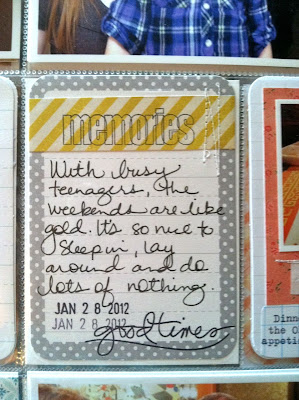 memories
With busy
teenagers, the
weekends are like
gold. It's so nice to
sleep in, lay
around and do
lots of nothing.
JAN 28-2012
JAN 28-2012
good times
Dinne
the O
appetiz